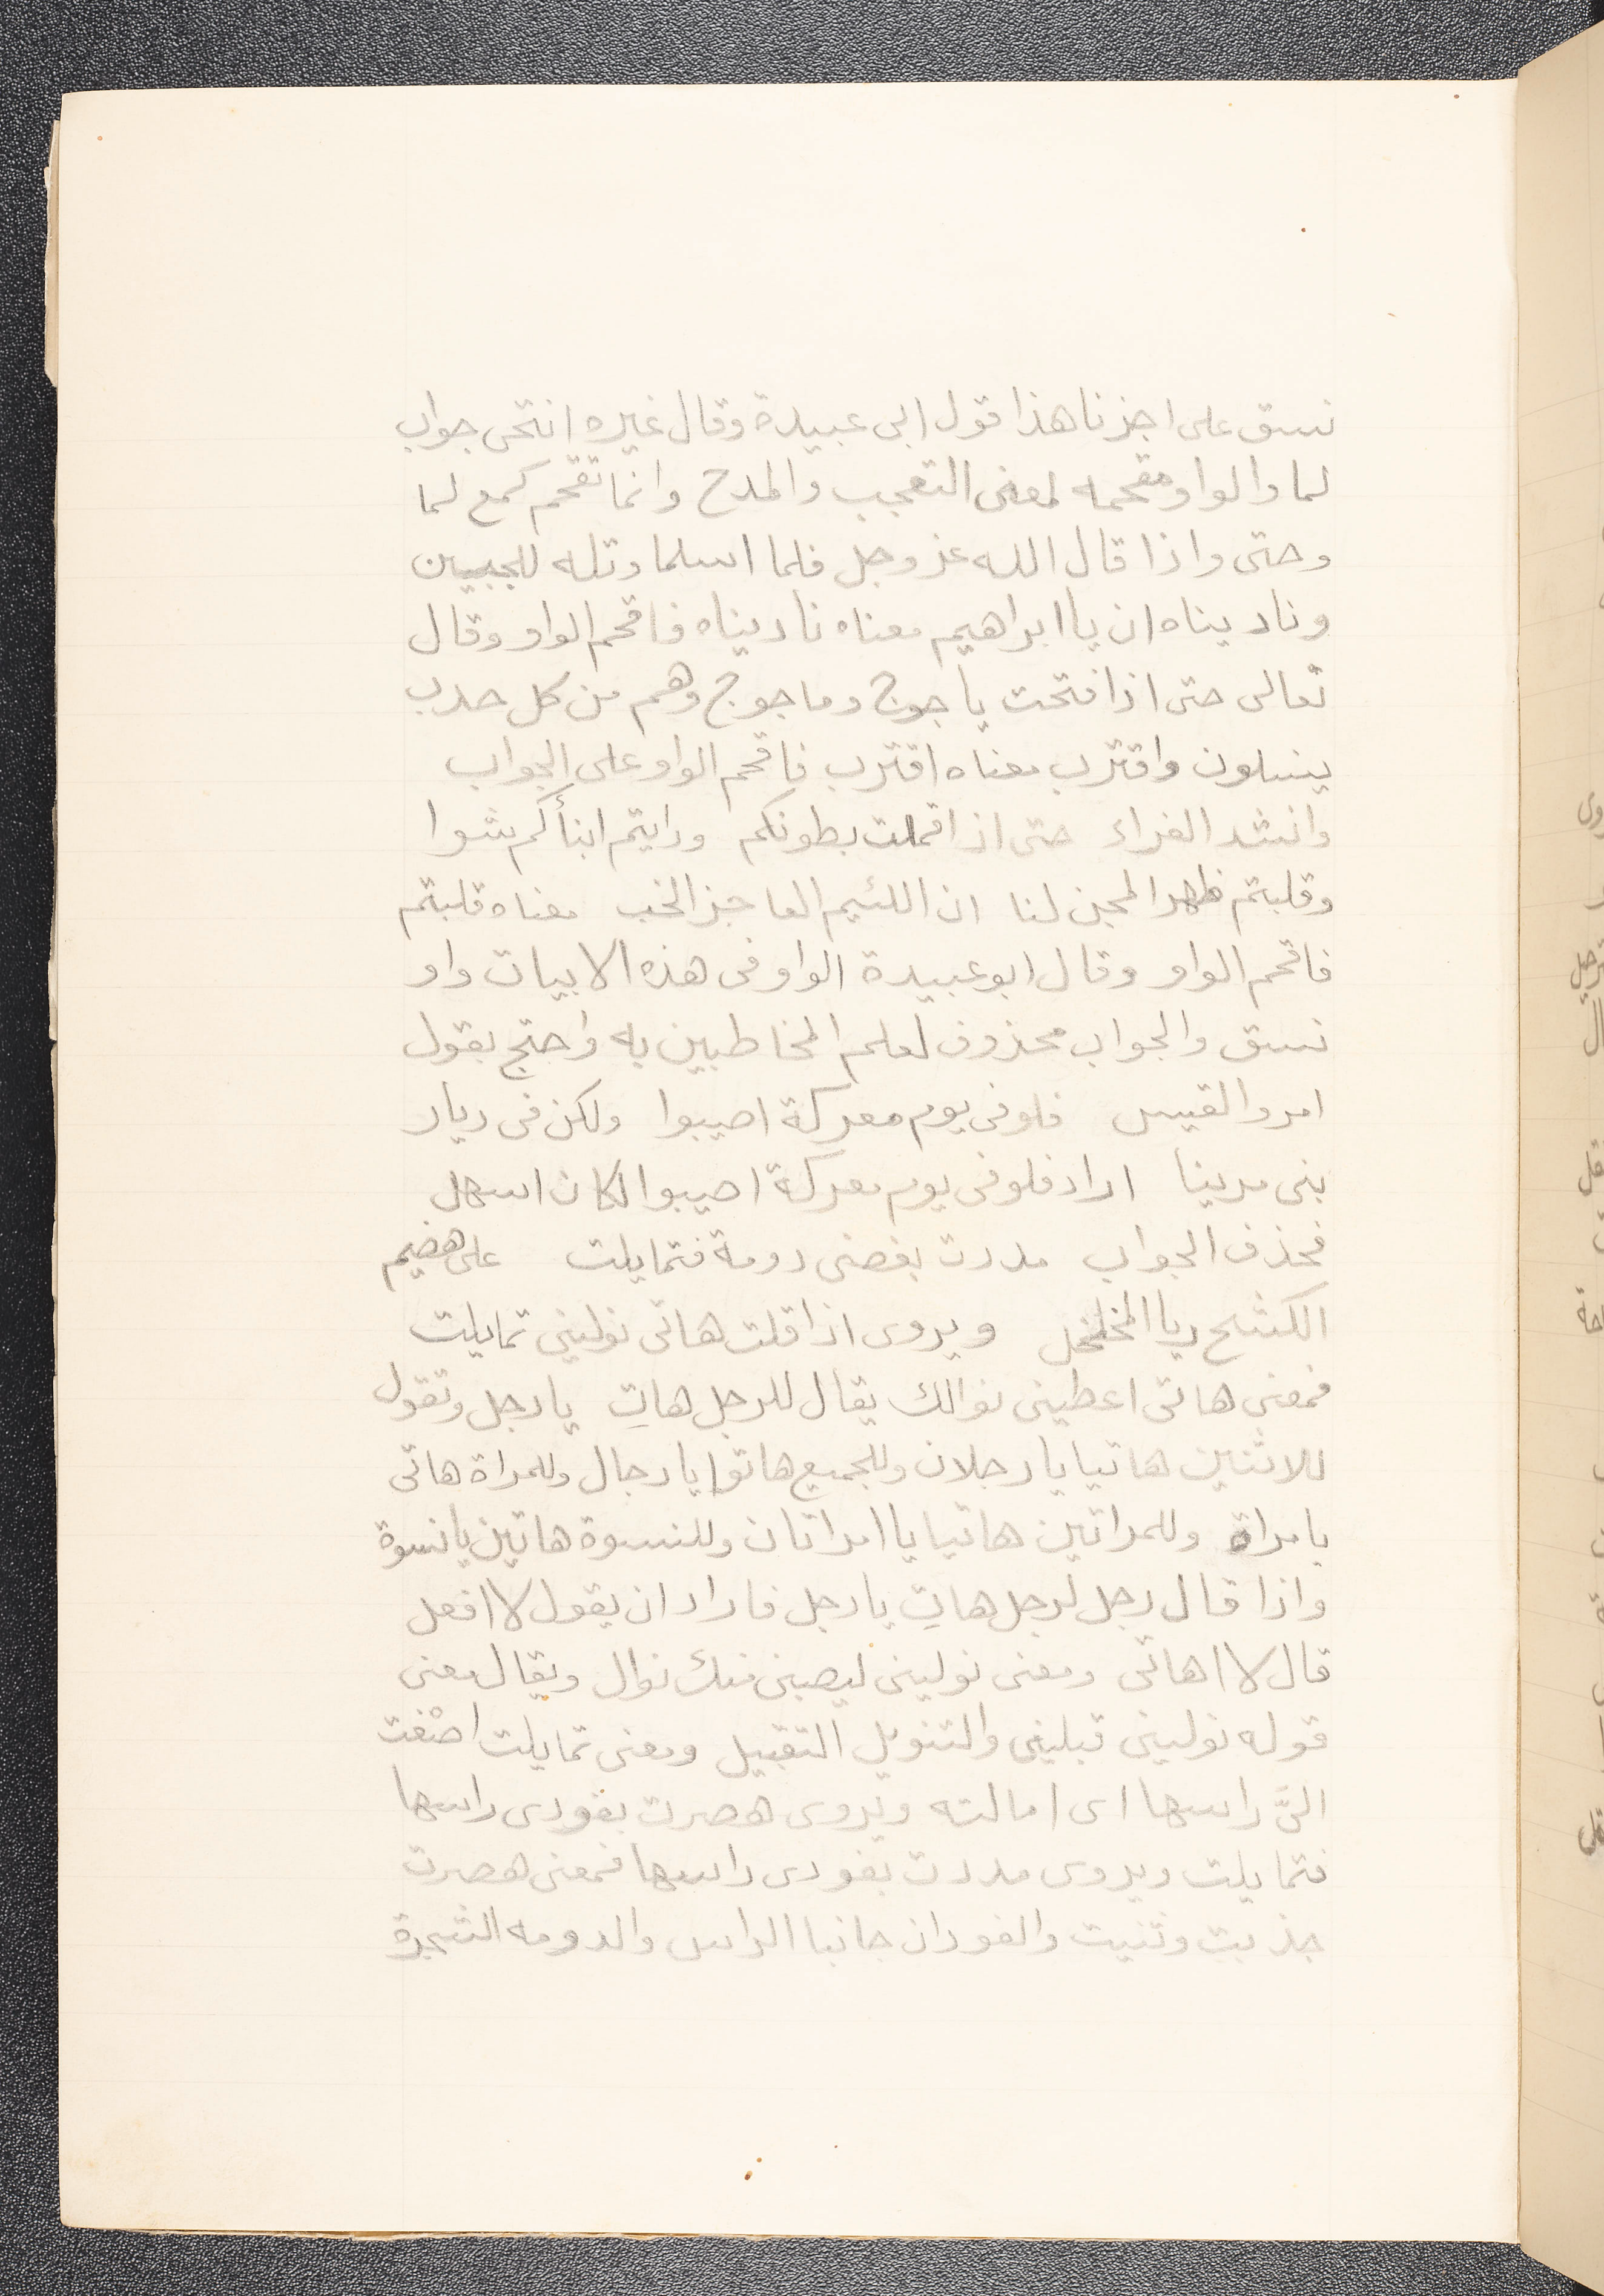 نسق على اجزنا هذا قول ابى عبيدة وقال غيره انتحى جواب
لما والواو مقحمه لمعنى التعجب والمدح وانما تقحم كمع لما
وحتى واذا قال الله عز وجل فلما اسلما وتله للجبين
وناديناه ان يا ابراهيم معناه ناديناه فاقحم الواو وقال
تعالى حتى اذا فتحت ياجوج وماجوج وهم من كل حدب
ينسلون واقترب معناه اقترب فاقحم الواو على الجواب
وانشد الفراء حتى اذا قملت بطونكم ورايتم ابنأكم شبوا
وقلبتم ظهر المجن لنا ان اللئيم العاجز الخب معناه قلبتم
فاقحم الواو وقال ابو عبيدة الواو فى هذه الابيات واو
نسق والجواب محذوف لعلم المخاطبين به واحتج بقول
امرو القيس فلو فى يوم معركة اصيبوا ولكن فى ديار
بنى مرينا اراد فلو فى يوم معركة اصيبوا لكان اسهل
فحذف الجواب مددت بغصنى دومة فتمايلت على هضيم
الكشح ريا المخلخل ويروى اذا قلت هاتى نولينى تمايلت
فمعنى هاتى اعطينى نوالك يقال للرجل هاتِ يا رجل وتقول
للاثنين هاتيا يا رجلان وللجميع هاتوا يا رجال وللمراة هاتى
يا مراة وللمراتين هاتيا يا امراتان وللنسوة هاتين يا نسوة
واذا قال رجل لرجل هاتِ يا رجل فاراد ان يقول لا افعل
قال لا اهاتى ومعنى نولينى ليصبنى منك نوال ويقال معنى
قوله نولينى قبلينى والتنويل التقبيل ومعنى تمايلت اصْغت
الىَّ راسها اى امالته ويروى هصرت بفودى راسها
فتمايلت ويروى مددت بفودى راسها فمعنى هصرت
جذبت وثنيت والفودان جانبا الراس والدومه الشجرة